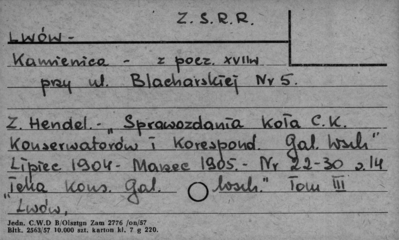 Z. S. R. R.
LWÓW -
Kamienica - z pocz. XVIIw.
przy ul. Blacharskiej Nr 5.
Z. Hendel. - "Sprawozdania Koła C.K.
Konserwatorów i Korespond. Gal. Wsch"
Lipiec 1904 - Marzec 1905. - Nr 22-30 s. 14
"Teka Kons. Gal. Wsch." Tom III
"Lwów,
Jedn. C.W.D B/Olsztyn Zam 2776 /on/57
Błtk. 2563/57 10.000 szt. karton kl. 7 g 220.